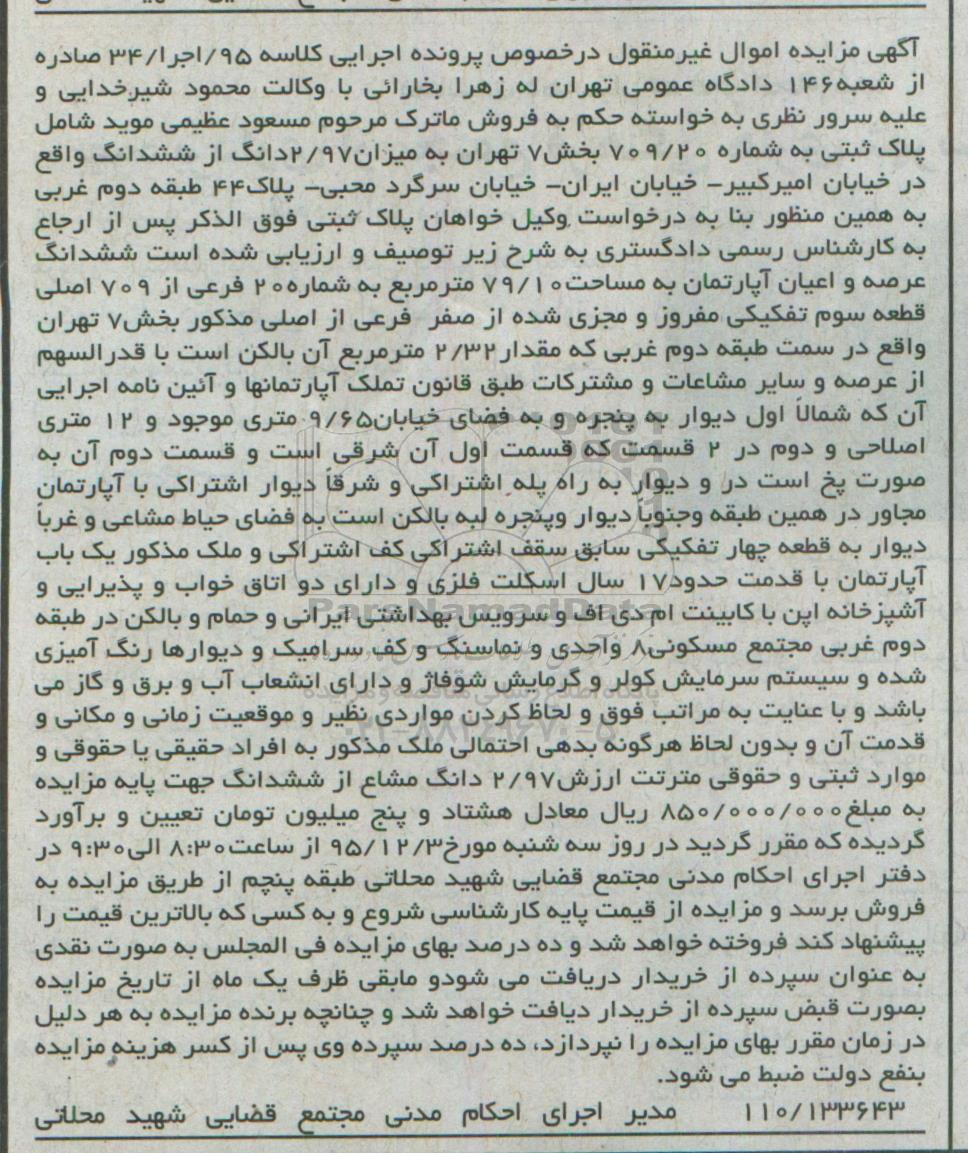 آگهی مزایده اموال غیرمنقول درخصوص پرونده اجرایی کلاسه ۹۵/اجرا/۳۴ صادره
از شعبه۱۴۶ دادگاه عمومی تهران له زهرا بخارائی با وکالت محمود شیرخدایی و
علیه سرور نظری به خواسته حکم به فروش ماترک مرحوم مسعود عظیمی موید شامل
پلاک ثبتی به شماره ۷۰۹/۲۰ بخش۷ تهران به میزان۲/۹۷دانگ از ششدانگ واقع
در خیابان امیرکبیر- خیابان ایران- خیابان سرگرد محبی- پلاک۴۴ طبقه دوم غربی
به همین منظور بنا به درخواست وکیل خواهان پلاک ثبتی فوق الذکر پس از ارجاع
به کارشناس رسمی دادگستری به شرح زیر توصیف و ارزیابی شده است ششدانگ
عرصه و اعیان آپارتمان به مساحت۷۹/۱۰ مترمربع به شماره۲۰ فرعی از ۷۰۹ اصلی
قطعه سوم تفکیکی مفروز و مجزی شده از صفر فرعی از اصلی مذکور بخش۷ تهران
واقع در سمت طبقه دوم غربی که مقدار۲/۳۲ مترمربع آن بالکن است با قدرالسهم
از عرصه و سایر مشاعات و مشترکات طبق قانون تملک آپارتمانها و آئین نامه اجرایی
آن که شمالاً اول دیوار به پنجره و به فضای خیابان۹/۶۵ متری موجود و ۱۲ متری
اصلاحی و دوم در ۲ قسمت که قسمت اول آن شرقی است و قسمت دوم آن به
صورت پخ است در و دیوار به راه پله اشتراکی و شرقاً دیوار اشتراکی با آپارتمان
مجاور در همین طبقه وجنوباً دیوار وپنجره لبه بالکن است به فضای حیاط مشاعی و غرباً
دیوار به قطعه چهار تفکیکی سابق سقف اشتراکی کف اشتراکی و ملک مذکور یک باب
آپارتمان با قدمت حدود۱۷ سال اسکلت فلزی و دارای دو اتاق خواب و پذیرایی و
آشپزخانه اپن با کابینت ام دی اف و سرویس بهداشتی ایرانی و حمام و بالکن در طبقه
دوم غربی مجتمع مسکونی۸ واحدی و نماسنگ و کف سرامیک و دیوارها رنگ آمیزی
شده و سیستم سرمایش کولر و گرمایش شوفاژ و دارای انشعاب آب و برق و گاز می
باشد و با عنایت به مراتب فوق و لحاظ کردن مواردی نظیر و موقعیت زمانی و مکانی و
قدمت آن و بدون لحاظ هرگونه بدهی احتمالی ملک مذکور به افراد حقیقی یا حقوقی و
موارد ثبتی و حقوقی مترتت ارزش۲/۹۷ دانگ مشاع از ششدانگ جهت پایه مزایده
به مبلغ۸۵۰/۰۰۰/۰۰۰ ریال معادل هشتاد و پنج میلیون تومان تعیین و برآورد
گردیده که مقرر گردید در روز سه شنبه مورخ۹۵/۱۲/۳ از ساعت۸:۳۰ الی۹:۳۰ در
دفتر اجرای احکام مدنی مجتمع قضایی شهید محلاتی طبقه پنچم از طریق مزایده به
فروش برسد و مزایده از قیمت پایه کارشناسی شروع و به کسی که بالاترین قیمت را
پیشنهاد کند فروخته خواهد شد و ده درصد بهای مزایده فی المجلس به صورت نقدی
به عنوان سپرده از خریدار دریافت می شودو مابقی ظرف یک ماه از تاریخ مزایده
بصورت قبض سپرده از خریدار دیافت خواهد شد و چنانچه برنده مزایده به هر دلیل
در زمان مقرر بهای مزایده را نپردازد، ده درصد سپرده وی پس از کسر هزینه مزایده
بنفع دولت ضبط می شود.
۱۱۰/۱۳۳۶۴۳ مدیر اجرای احکام مدنی مجتمع قضایی شهید محلاتی